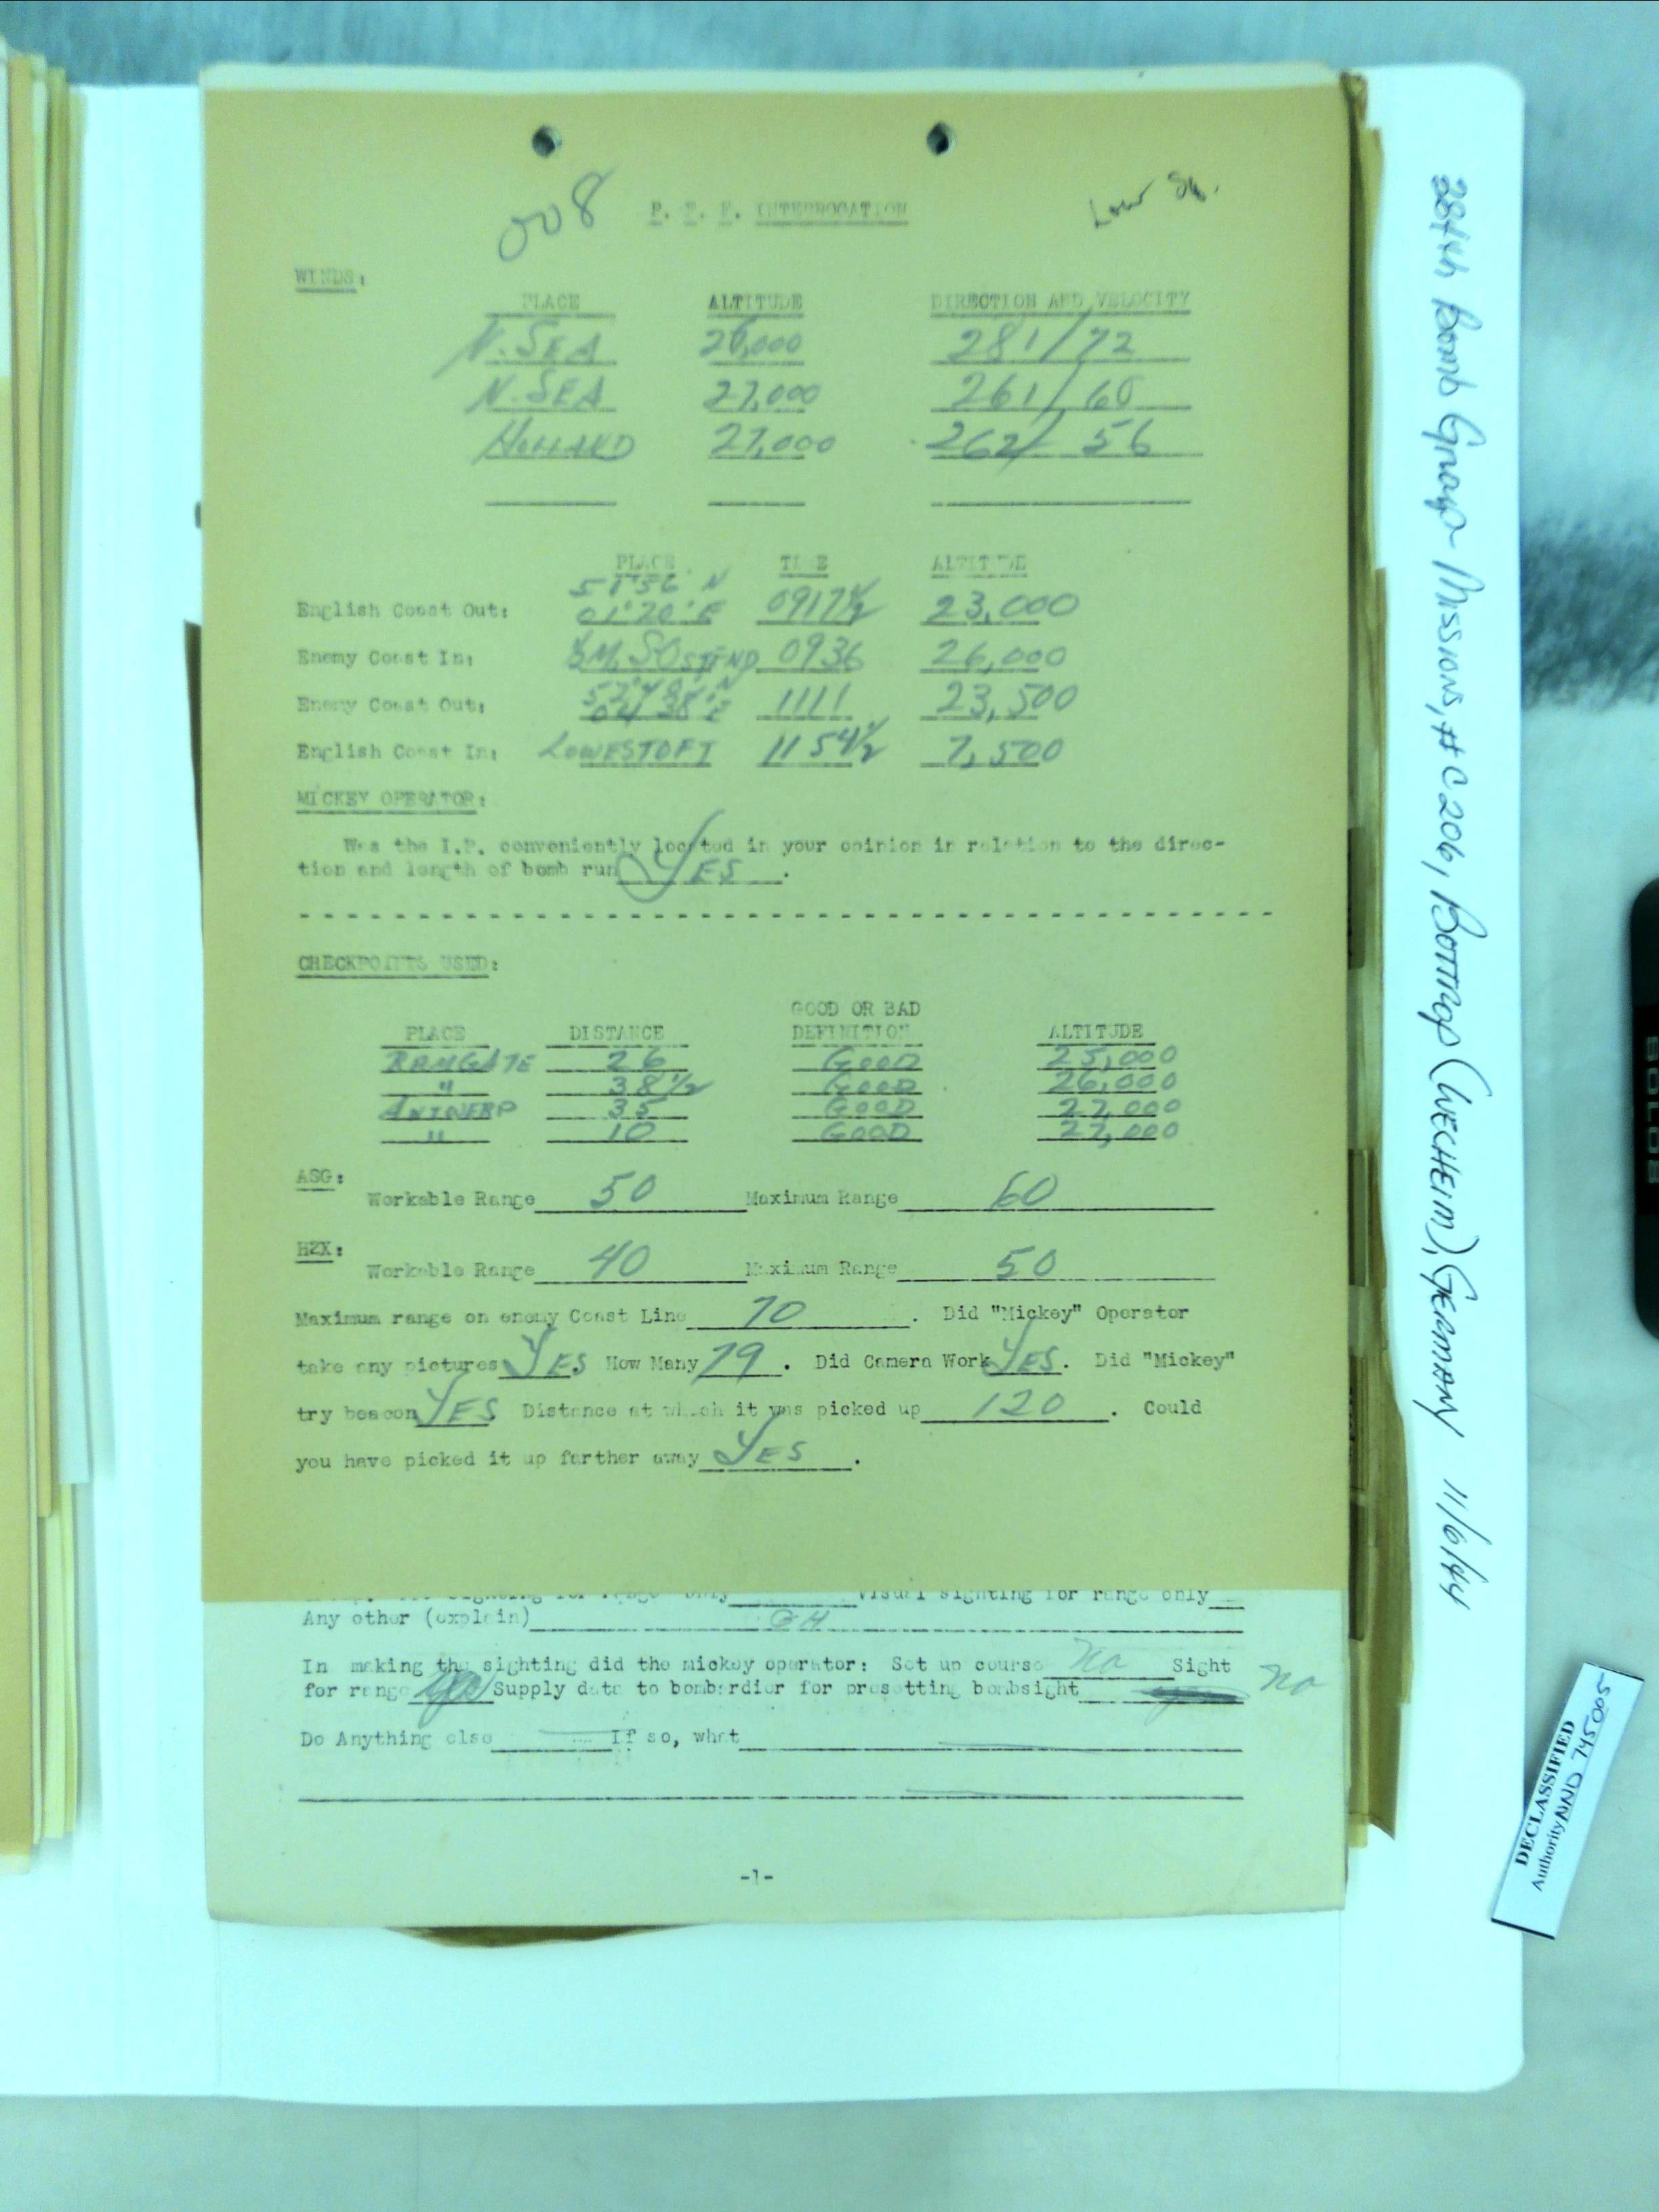 008 P. F. F. INTERROGATION Low Sq.
WINDS:
PLACE ALTITUDE DIRECTION AND VELOCITY
N. SEA 26,000 281/72
N. SEA 27,000 261/60
HOLLAND 27,000 262/56
PLACE TIME ALTITUDE
51°56'N
English Coast Out: 01°20'E 0917½ 23,000
Enemy Coast In: OSTEND 0936 26,000
Enemy Coast Out: 04 38'E 1111 23,500
English Coast In: LOWESTOFT 1154½ 7,500
MICKEY OPERATOR:
Was the I.P. conveniently located in your opinion in relation to the direc-
tion and length of bomb run YES.
CHECKPOINTS USED:
GOOD OR BAD
PLACE DISTANCE DEFINITION ALTITUDE
RAMGATE 26 GOOD 25,000
" 38½ GOOD 26,000
ANTWERP 35 GOOD 27,000
" 10 GOOD 27,000
ASG:
Workable Range 50 Maximum Range 60
H2X:
Workable Range 40 Maximum Range 50
Maximum range on enemy Coast Line 70. Did "Mickey" Operator
take any pictures YES How Many 79. Did Camera Work YES. Did "Mickey"
try beacon YES Distance at which it was picked up 120. Could
you have picked it up farther away YES.
sighting for range only Visual sighting for range only
Any other (explain) GH
In making the sighting did the mickey operator: Set up course no Sight
for range yes Supply data to bombardier for presetting bombsight no
Do Anything else If so, what
-1-
384th Bomb Group Missions, #C206, Bottrop (Welheim), Germany 11/6/44
DECLASSIFIED
Authority NND 745005